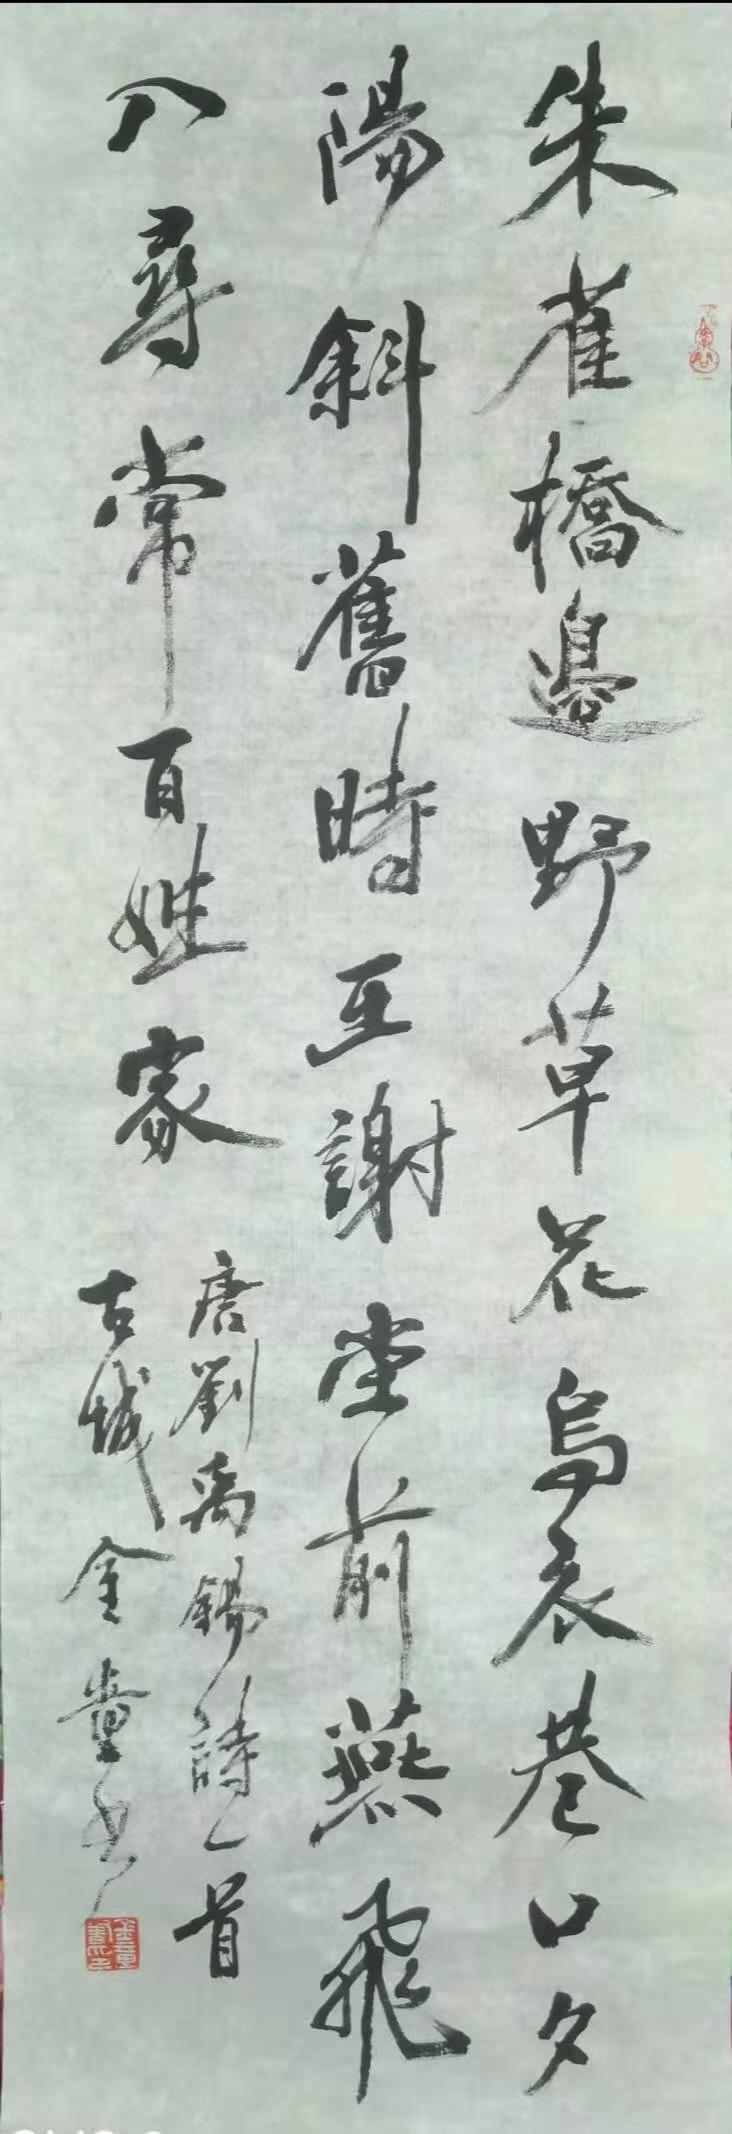 朱雀橋邊野草花烏衣巷口夕
陽斜舊時王謝堂前燕飛
入尋常百姓家
唐劉禹錫詩一首
古城金童书